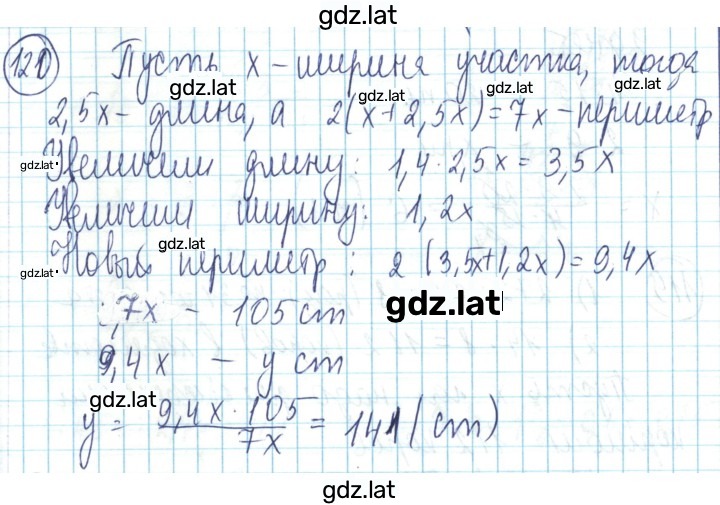 gdz.lat
120 Пусть x - ширина участка, тогда
gdz.lat gdz.lat gdz.lat
2,5x - длина, а 2(x+2,5x)=7x - периметр
gdz.lat Увеличили длину: 1,4·2,5x = 3,5x
Увеличили ширину: 1,2x
gdz.lat
gdz.lat Новый периметр: 2(3,5x+1,2x)=9,4x
7x - 105 ст
gdz.lat
9,4x - y ст
gdz.lat
y = 9,4x·105 / 7x = 141 (ст)
gdz.lat